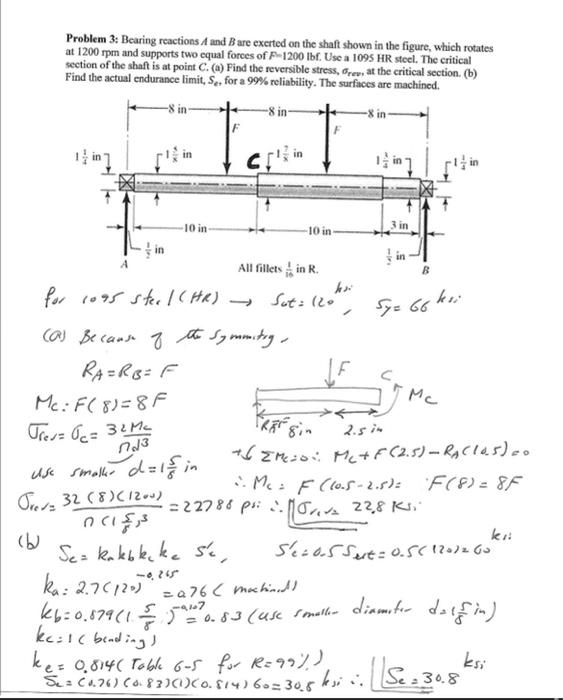 Problem 3: Bearing reactions A and B are exerted on the shaft shown in the figure, which rotates
at 1200 rpm and supports two equal forces of F=1200 lbf. Use a 1095 HR steel. The critical
section of the shaft is at point C. (a) Find the reversible stress, σrev, at the critical section. (b)
Find the actual endurance limit, Se, for a 99% reliability. The surfaces are machined.
8 in 8 in 8 in
F F
1 1/4 in 1 5/8 in C 1 7/8 in 1 3/4 in 1 1/4 in
10 in 10 in 3 in
1/2 in 1/2 in
A All fillets 1/16 in R. B
for 1095 steel (HR) → Sut = 120 ksi, Sy = 66 ksi
(a) Because of the Symmitry,
RA = RB = F
F C
Mc: F(8) = 8F
Mc
8in 2.5 in
σrev = σc = 32Mc / πd³
ΣMc=0: Mc + F(2.5) - RA(10.5) = 0
use smaller d = 1 5/8 in
∴ Mc = F(10.5-2.5) = F(8) = 8F
σrev = 32 (8)(1200) / π(1 5/8)³ = 22786 psi ∴ σrev = 22.8 Ksi
(b)
Se = ka kb kc ke S'e, S'e = 0.5 Sut = 0.5(120) = 60 ksi
ka = 2.7(120)^-0.265 = 0.76 (machined)
kb = 0.879(1 5/8)^-0.107 = 0.83 (use smaller diameter d = 1 5/8 in)
kc = 1 (bending)
ke = 0.814 (Table 6-5 for R=99%)
Se = (0.76)(0.83)(1)(0.814) 60 = 30.8 ksi ∴ Se = 30.8 ksi